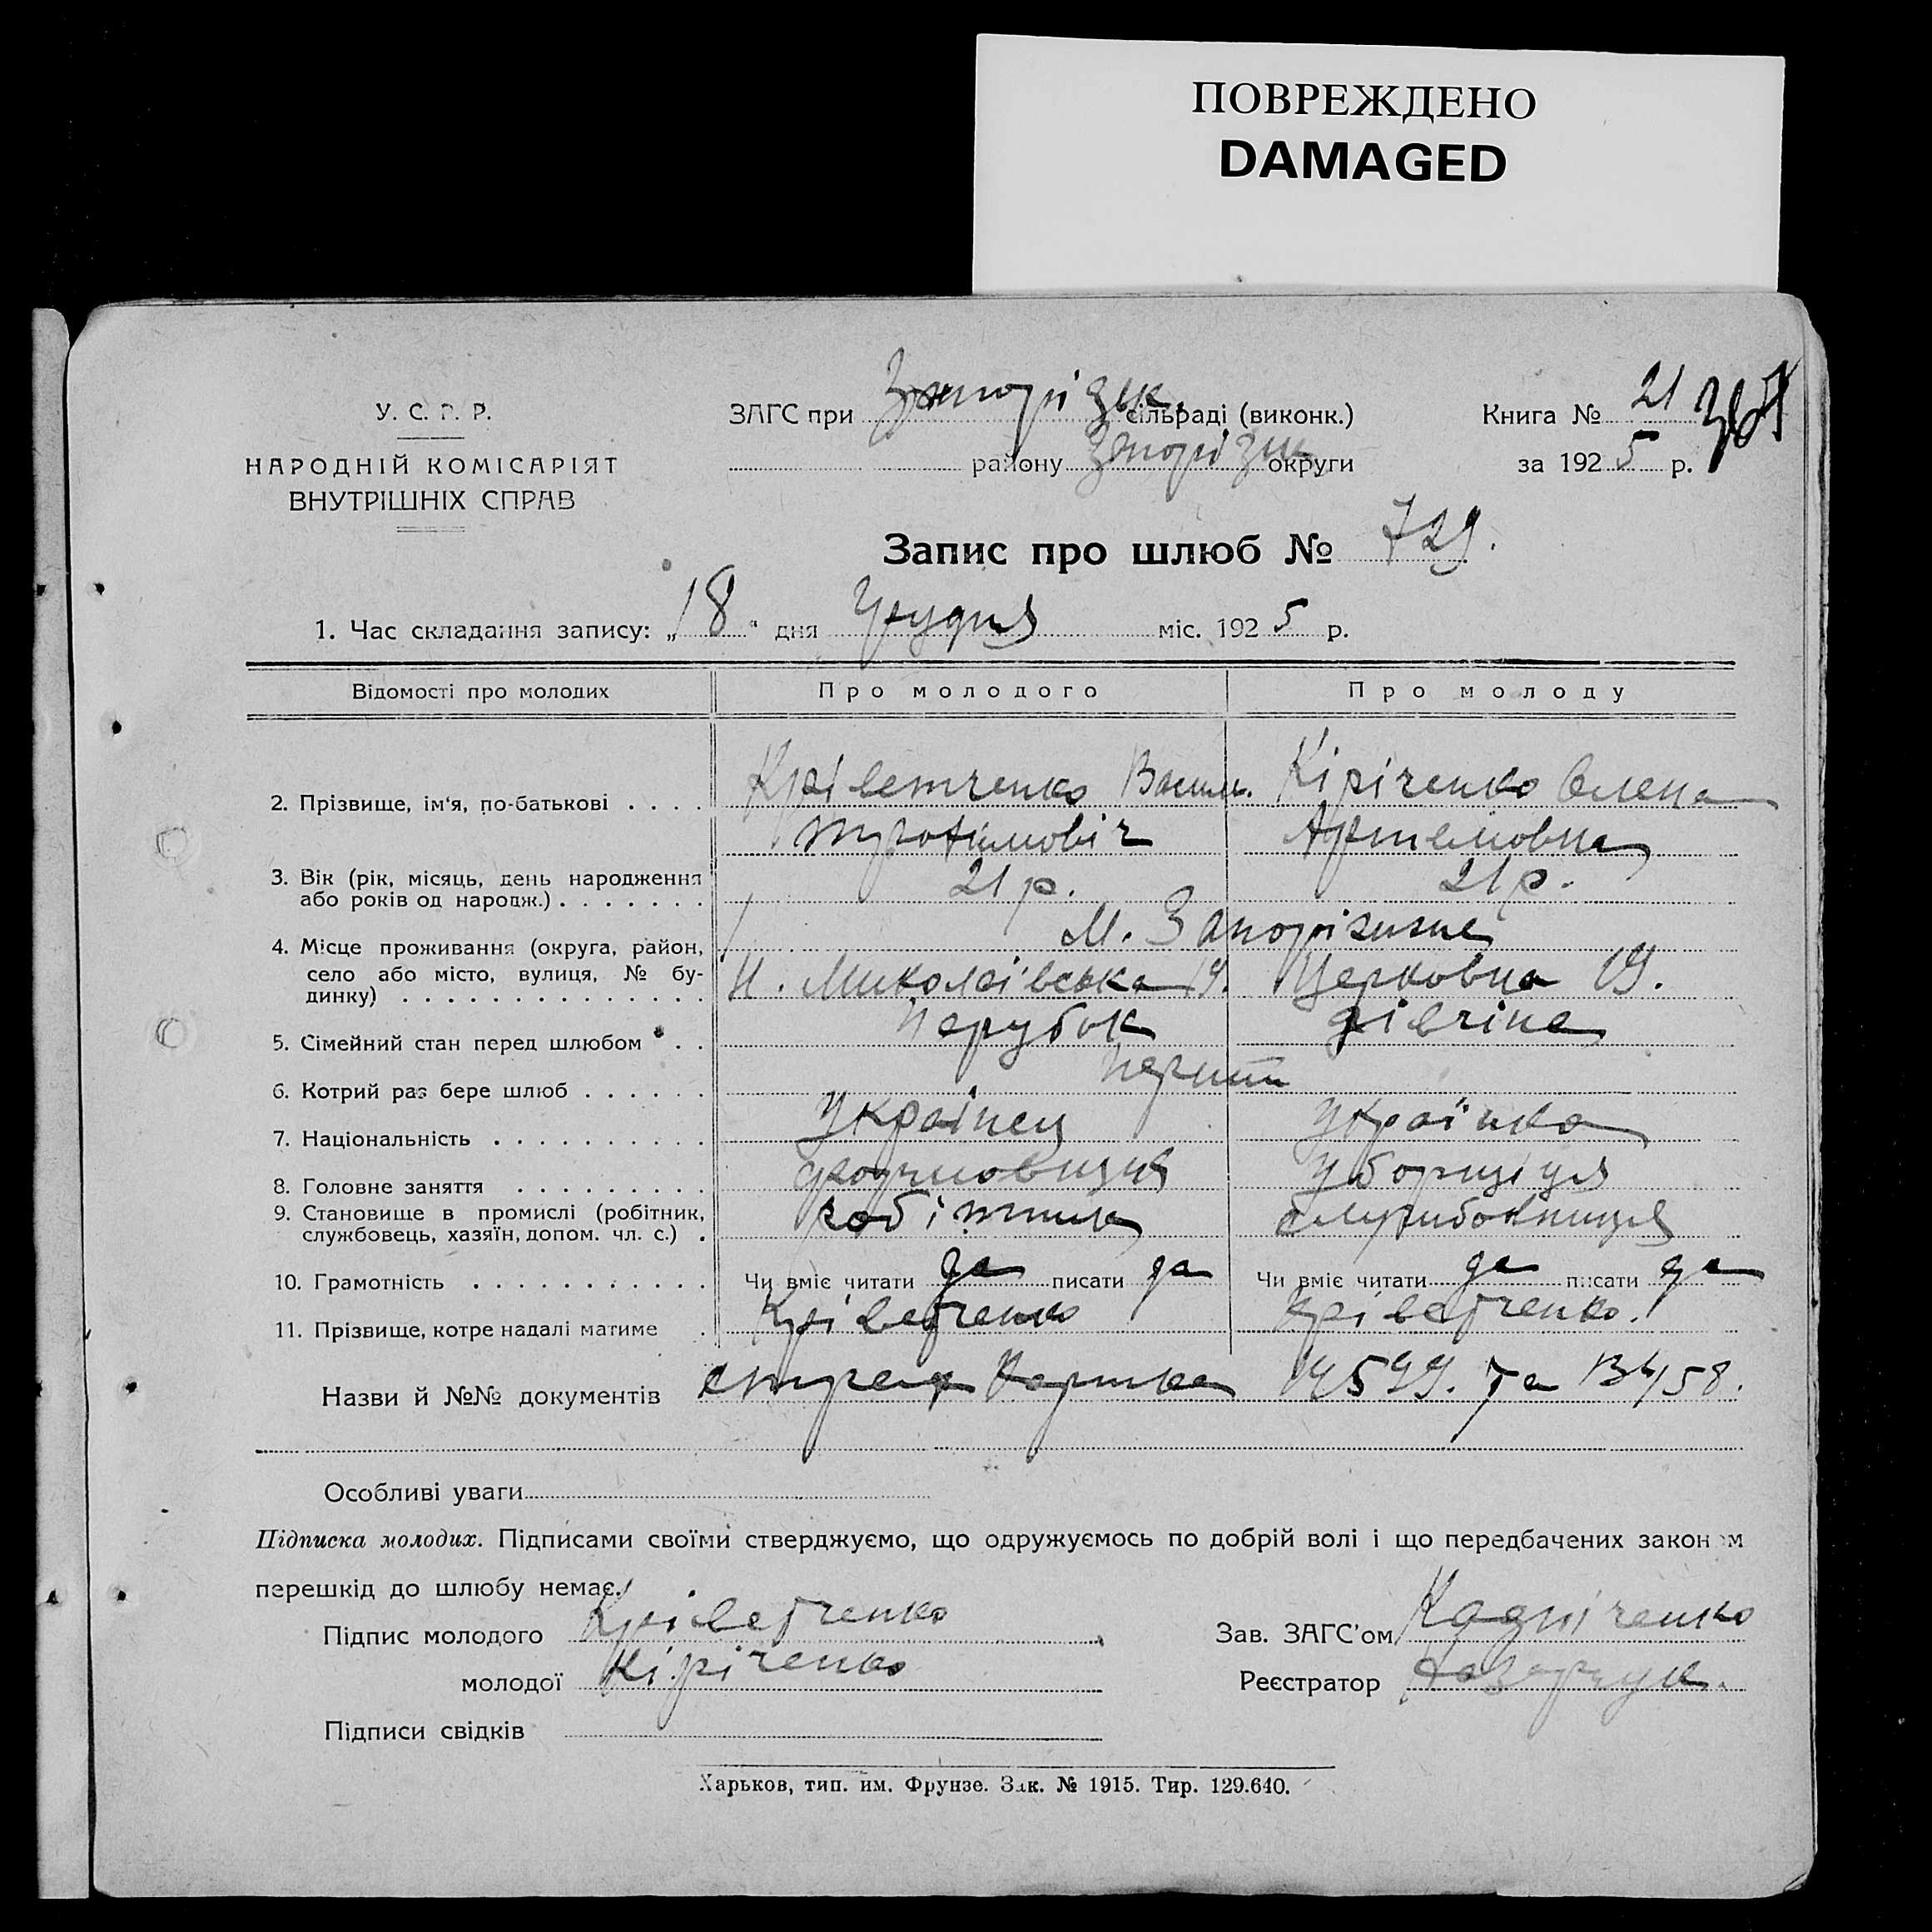 ПОВРЕЖДЕНО
DAMAGED
У. С. Р. Р.
НАРОДНІЙ КОМІСАРІЯТ
ВНУТРІШНІХ СПРАВ
ЗАГС при Запорізьк. сільраді (виконк.)
району Запорізьк округи
Книга № 21
за 1925 р.
Запис про шлюб № 729.
1. Час складання запису: „18" дня Грудня міс. 1925 р.
Відомості про молодих Про молодого Про молоду
2. Прізвище, ім'я, по-батькові . . . . Кріветченко Васил. Кіріченко Олена
Артемовна
3. Вік (рік, місяць, день народження
або років од народж.) . . . . . . . 21 р. 21 р.
4. Місце проживання (округа, район, М. Запоріжже
село або місто, вулиця, № бу-
динку) . . . . . . . . . . . . . . . Н. Миколаївська 19. Церковна 19.
5. Сімейний стан перед шлюбом . . Парубок дівчіна
6. Котрий раз бере шлюб . . . . . . Перший
7. Національність . . . . . . . . . . Українец Українка
8. Головне заняття . . . . . . . . . Уборщіця
9. Становище в промислі (робітник, робітник службовниця
службовець, хазяїн, допом. чл. с.) .
10. Грамотність . . . . . . . . . . . Чи вміє читати да писати да Чи вміє читати да писати да
11. Прізвище, котре надалі матиме . Кріветченко Кріветченко.
Назви й №№ документів Картка 14599. та 13458.
Особливі уваги
Підписка молодих. Підписами своїми стверджуємо, що одружуємось по добрій волі і що передбачених законом
перешкід до шлюбу немає.
Підпис молодого Кріветченко
Зав. ЗАГС'ом
молодої Кіріченко
Реєстратор
Підписи свідків
Харьков, тип. им. Фрунзе. Зак. № 1915. Тир. 129.640.